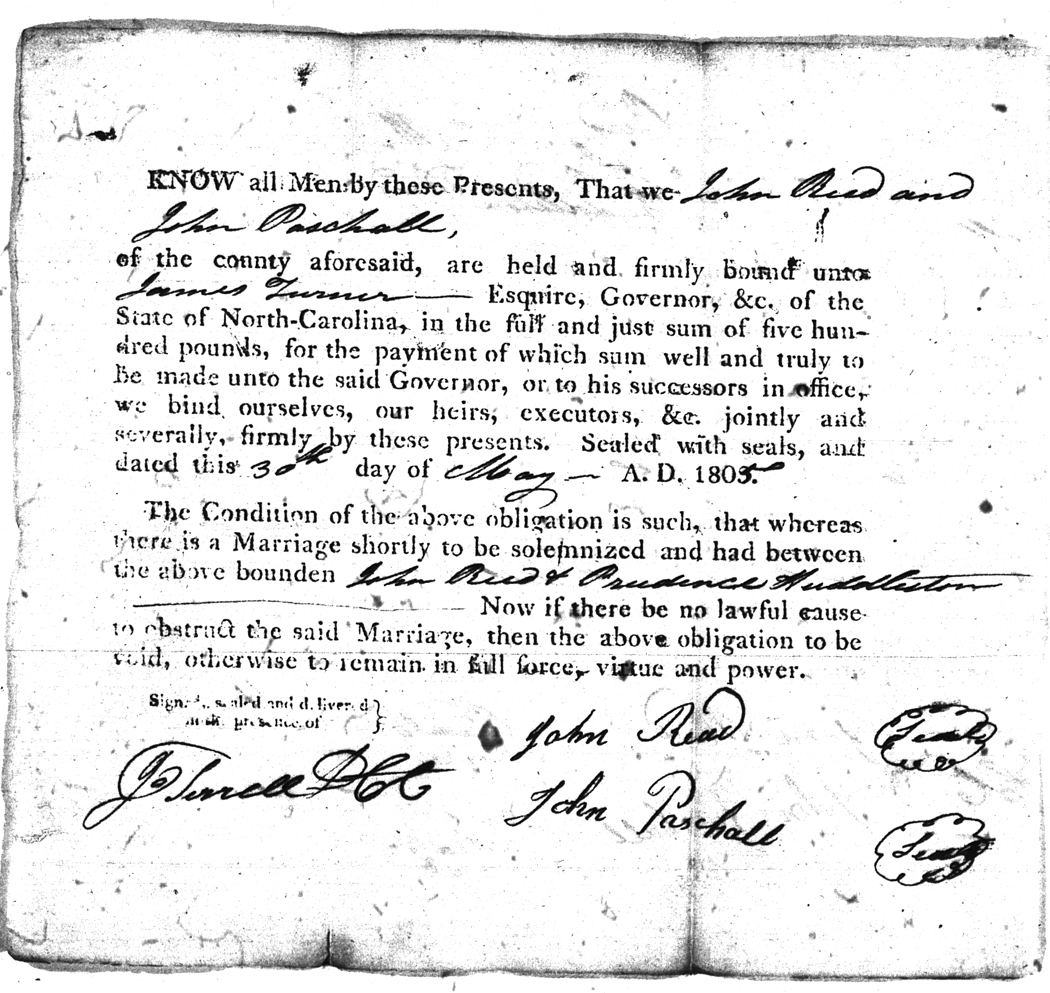 KNOW all Men by these Presents, That we John Reed and
John Paschall,
of the county aforesaid, are held and firmly bound unto
James Turner — Esquire, Governor, &c. of the
State of North-Carolina, in the full and just sum of five hun-
dred pounds, for the payment of which sum well and truly to
be made unto the said Governor, or to his successors in office,
we bind ourselves, our heirs, executors, &c. jointly and
severally, firmly by these presents. Sealed with seals, and
dated this 30th day of May — A. D. 1805.
The Condition of the above obligation is such, that whereas
there is a Marriage shortly to be solemnized and had between
the above bounden John Reed & Prudence Huddleston
— Now if there be no lawful cause
to obstruct the said Marriage, then the above obligation to be
void, otherwise to remain in full force, virtue and power.
Signed, sealed and delivered }
in the presence of }
John Read Seal
J Terrell DCt
John Paschall Seal